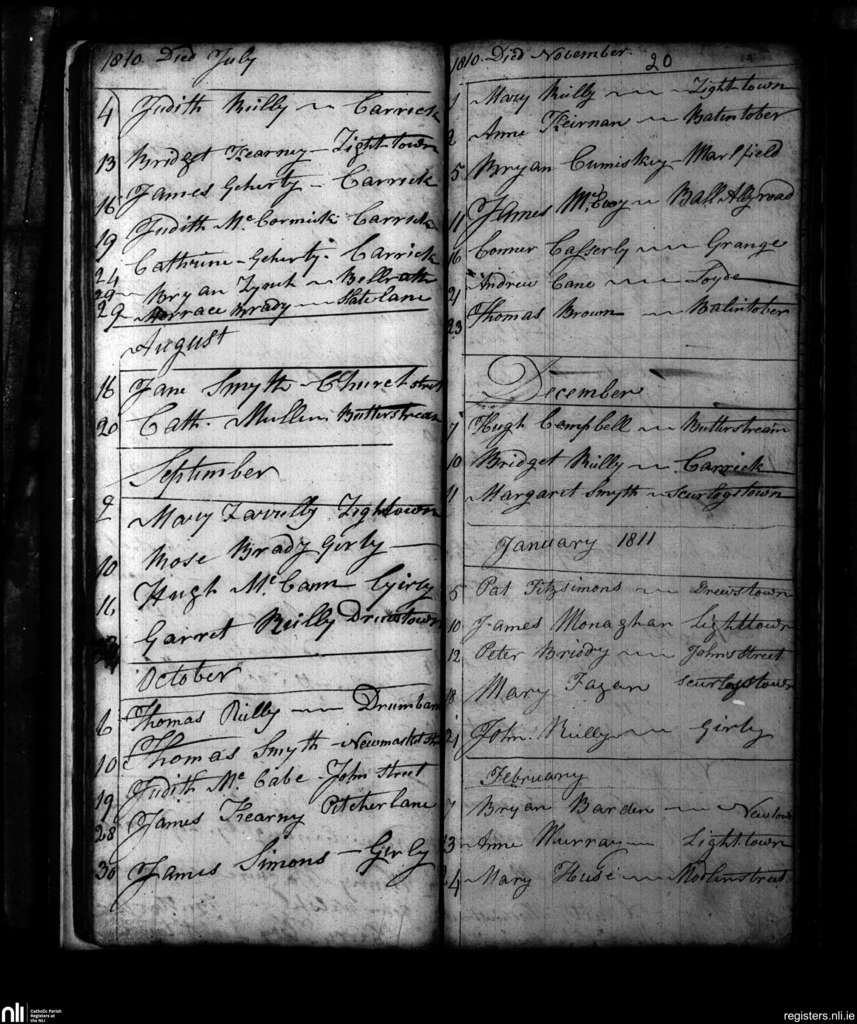 1810 Died July
4 Judith Reilly Carrick
13 Bridget Kearney Lighttown
16 James Geherty Carrick
19 Judith McCormick Carrick
24 Cathrine Geherty Carrick
29 Bryan Lynch Bellrath
29 Brady Slate lane
August
16 Jane Smyth Church street
20 Cath. Mullin Butterstream
September
2 Mary Lightown
10 Rose Brady Girly
16 Hugh McCann Girly
Garret Reilly Drewstown
October
6 Thomas Reilly Drumbar
10 Thomas Smyth Newmarket St
19 Judith McCabe John Street
28 James Kearny Pitcherlane
30 James Simons Girly
1810 Died November
20
1 Mary Reilly Lighttown
2 Anne Keirnan Balintober
5 Bryan Cumiskey Marlfield
11 James McEvoy
16 Conner Casserly Grange
21 Andrew Cane Loyde
23 Thomas Brown Balintober
December
7 Hugh Campbell Butterstream
10 Bridget Reilly Carrick
11 Margaret Smyth Scurlogstown
January 1811
5 Pat Fitzsimons Drewstown
10 James Monaghan Lighttown
12 Peter Briody Johns Street
18 Mary Fagan Scurlogstown
21 John Reilly Girly
February
7 Bryan Barden Newtown
13 Anne Murray Lighttown
24 Mary Huse
nli
Catholic Parish
Registers at
the NLI
registers.nli.ie